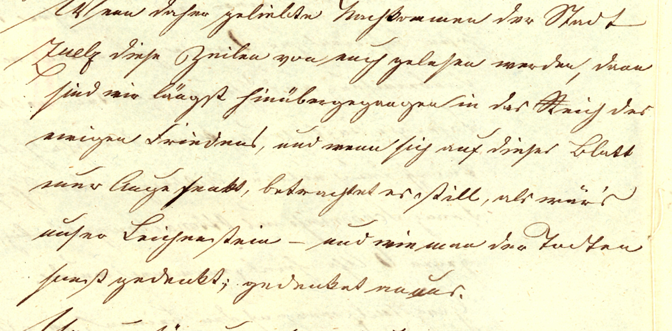 Wenn daher geliebte Nachkommen der Stadt
Zuelz diese Zeilen von euch gelesen werden, dann
sind wir längst hinübergegangen in das Reich des
ewigen Friedens, und wenn sich auf dieses Blatt
euer Auge senkt, betrachtet es still, als wär's
unser Leichenstein – und wie man der Todten
sonst gedenkt; gedenket unser.